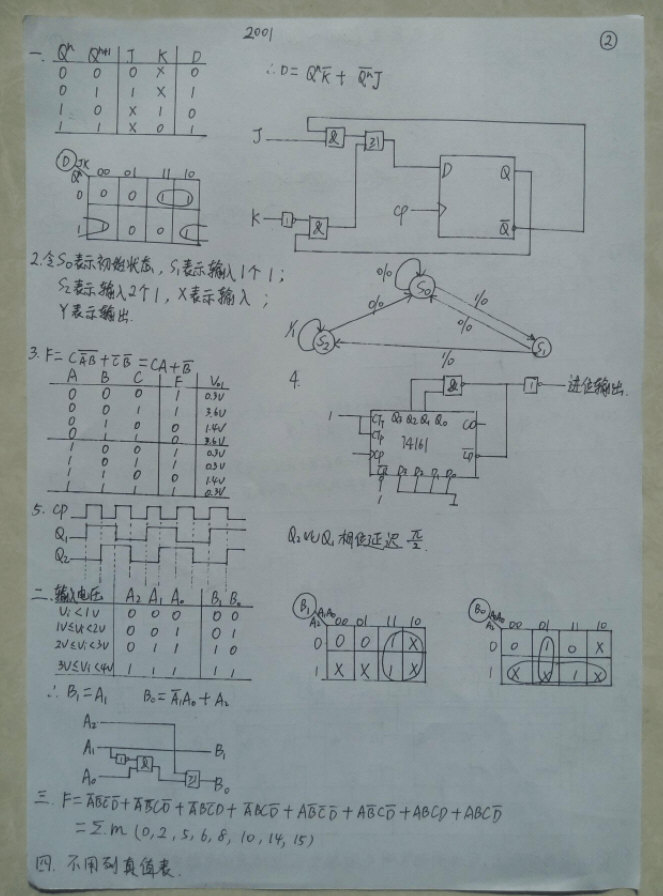 2001
②
一. Qⁿ Qⁿ⁺¹ J K D
0 0 0 X 0
0 1 1 X 1
1 0 X 1 0
1 1 X 0 1
∴ D = QⁿK̅ + Q̅ⁿJ
D JK 00 01 11 10
Qⁿ
0 0 0 1 1
1 1 0 0 1
J & ≥1 D Q
K 1 & CP Q̅
2. 令S₀表示初始状态, S₁表示输入1个1;
S₂表示输入2个1, X表示输入;
Y表示输出.
0/0 S₀ 1/0
0/0 0/0
S₂ 1/0 S₁
3. F = C\overline{AB} + \overline{C}\,\overline{B} = CA + B̅
A B C F
0 0 0 1 0.3V
0 0 1 1 3.6V
0 1 0 0 1.4V
0 1 1 0 3.6V
1 0 0 1 0.3V
1 0 1 1 0.3V
1 1 0 0 1.4V
1 1 1 1 0.3V
4.
& 1 进位输出.
1 Q₃ Q₂ Q₁ Q₀ CO
74161
CP
D₃ D₂ D₁ D₀
1
5. CP
Q₁
Q₂
Q₂比Q₁相位延迟 π/2.
二. 输入电压 A₂ A₁ A₀ B₁ B₀
Vi<1V 0 0 0 0 0
1V≤Vi<2V 0 0 1 0 1
2V≤Vi<3V 0 1 1 1 0
3V≤Vi<4V 1 1 1 1 1
B₁ A₁A₀ 00 01 11 10
A₂
0 0 0 1 X
1 X X 1 X
B₀ A₁A₀ 00 01 11 10
A₂
0 0 1 0 X
1 X X 1 X
∴ B₁ = A₁ B₀ = A̅₁A₀ + A₂
A₂
A₁ B₁
1 &
A₀ ≥1 B₀
三. F = A̅B̅C̅D̅ + A̅B̅CD̅ + A̅BC̅D + A̅BCD̅ + AB̅C̅D̅ + AB̅CD̅ + ABCD + ABCD̅
= Σm (0, 2, 5, 6, 8, 10, 14, 15)
四. 不用列真值表.